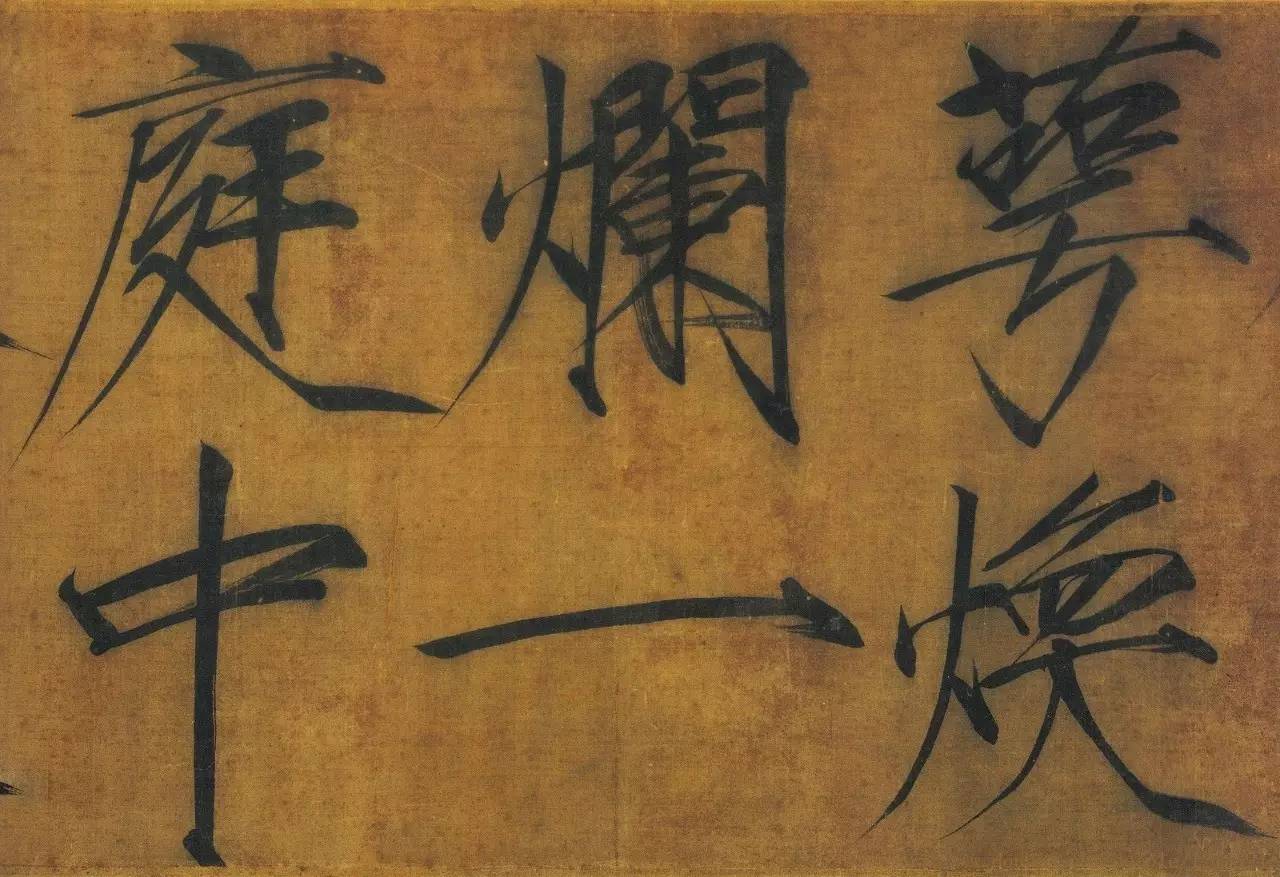 萼煥
爛一
庭中